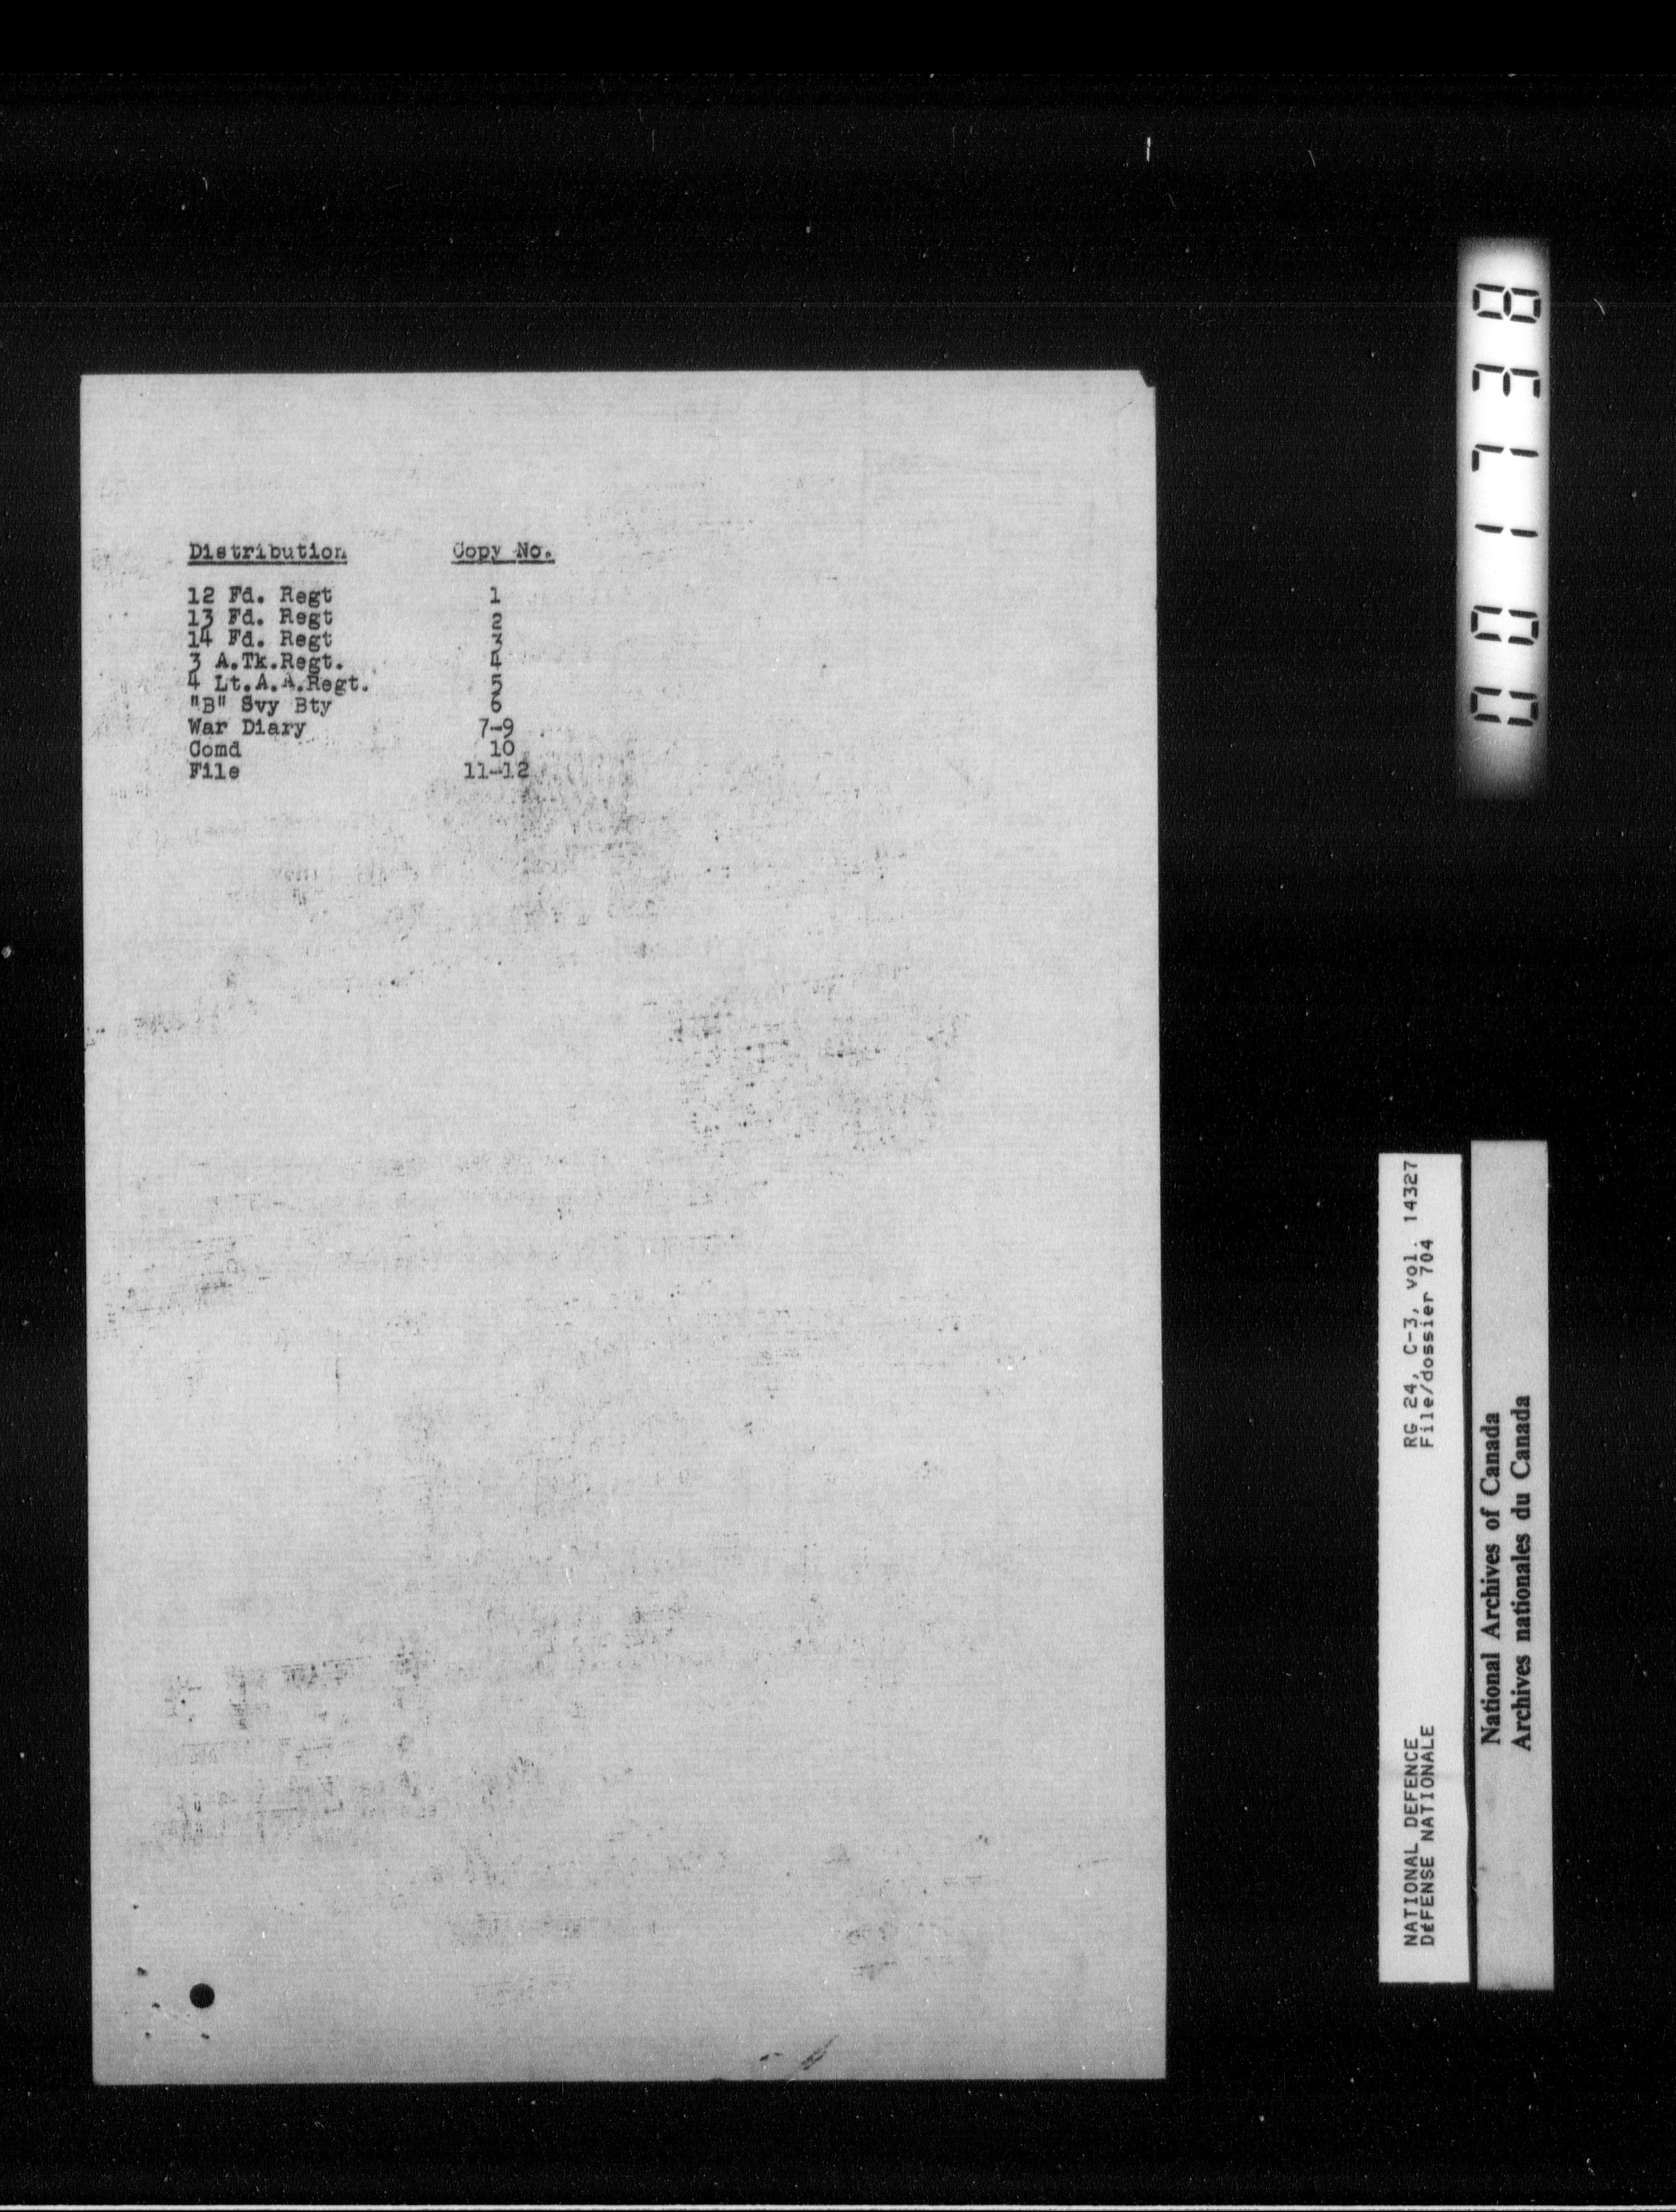 Distribution Copy No.
12 Fd. Regt 1
13 Fd. Regt 2
14 Fd. Regt 3
3 A.Tk.Regt. 4
4 Lt.A.A.Regt. 5
"B" Svy Bty 6
War Diary 7-9
Comd 10
File 11-12
001738
NATIONAL DEFENCE RG 24, C-3, vol. 14327
DÉFENSE NATIONALE File/dossier 704
National Archives of Canada
Archives nationales du Canada